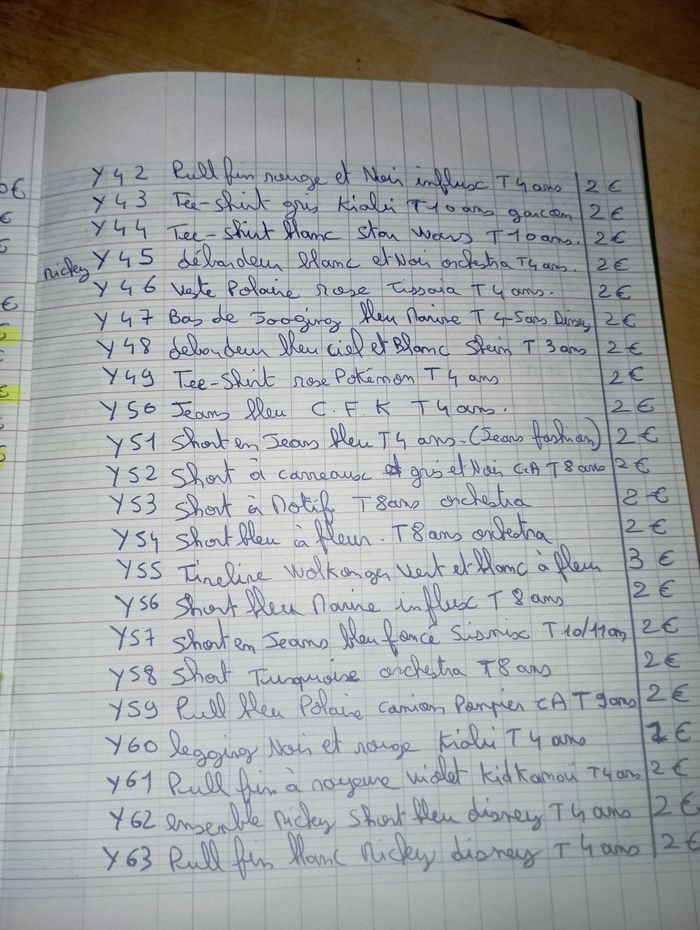 Y42 Pull fin rouge et Noir influx T4ans 2€
Y43 Tee-shirt gris Kiabi T10ans garçon 2€
Y44 Tee-Shirt blanc star wars T10ans. 2€
Micky Y45 débardeur blanc et Noir orchestra T4ans. 2€
Y46 veste Polaire rose Tissaia T4ans. 2€
Y47 Bas de Jogging bleu Marine T4-5ans Disney 2€
Y48 débardeur bleu ciel et Blanc T3ans 2€
Y49 Tee-Shirt rose Pokémon T4ans 2€
Y50 Jeans bleu C.F.K T4ans. 2€
Y51 Short en Jeans bleu T4ans-(Jeans fashion) 2€
Y52 Short à carreaux gris et Noir C.A T8ans 2€
Y53 Short à Motif T8ans orchestra 2€
Y54 Short bleu à fleur. T8ans orchestra 2€
Y55 Tirelire vert et blanc à fleur 3€
Y56 Short bleu Marine influx T8ans 2€
Y57 Short en Jeans bleu foncé Sismix T10/11ans 2€
Y58 Short Turquoise orchestra T8ans 2€
Y59 Pull bleu Polaire camion Pompier CA T9ans 2€
Y60 legging Noir et rouge Kiabi T4ans €
Y61 Pull fin à rayure violet T4ans 2€
Y62 ensemble Micky Short bleu disney T4ans 2€
Y63 Pull fin blanc Micky disney T4ans 2€